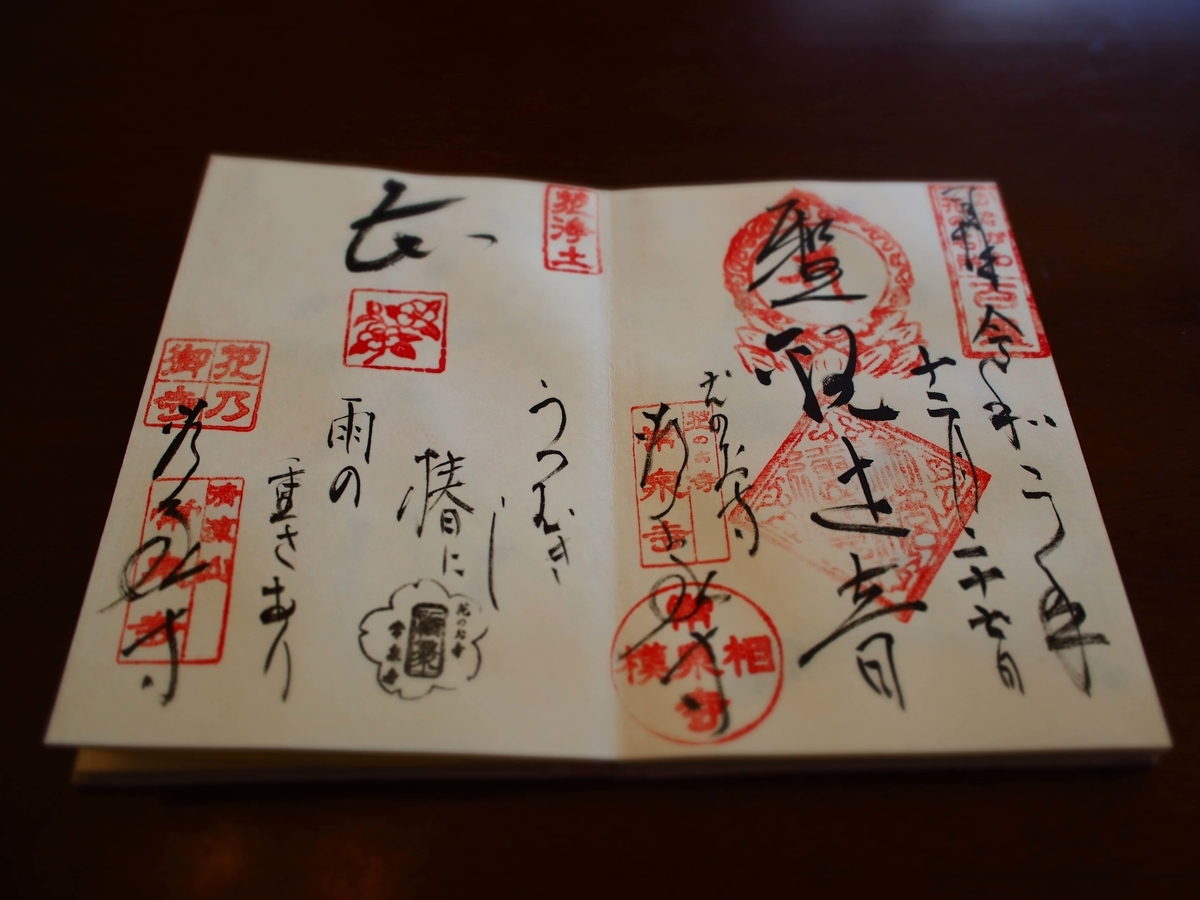 奉拝
令和元年
十二月二十七日
聖観世音
花のお寺
常泉寺
花のお寺
常泉寺
相模
常泉寺
花浄土
うつむきし
椿に
雨の
重さあり
花のお寺
常泉寺
花乃
御寺
常泉寺
常泉寺